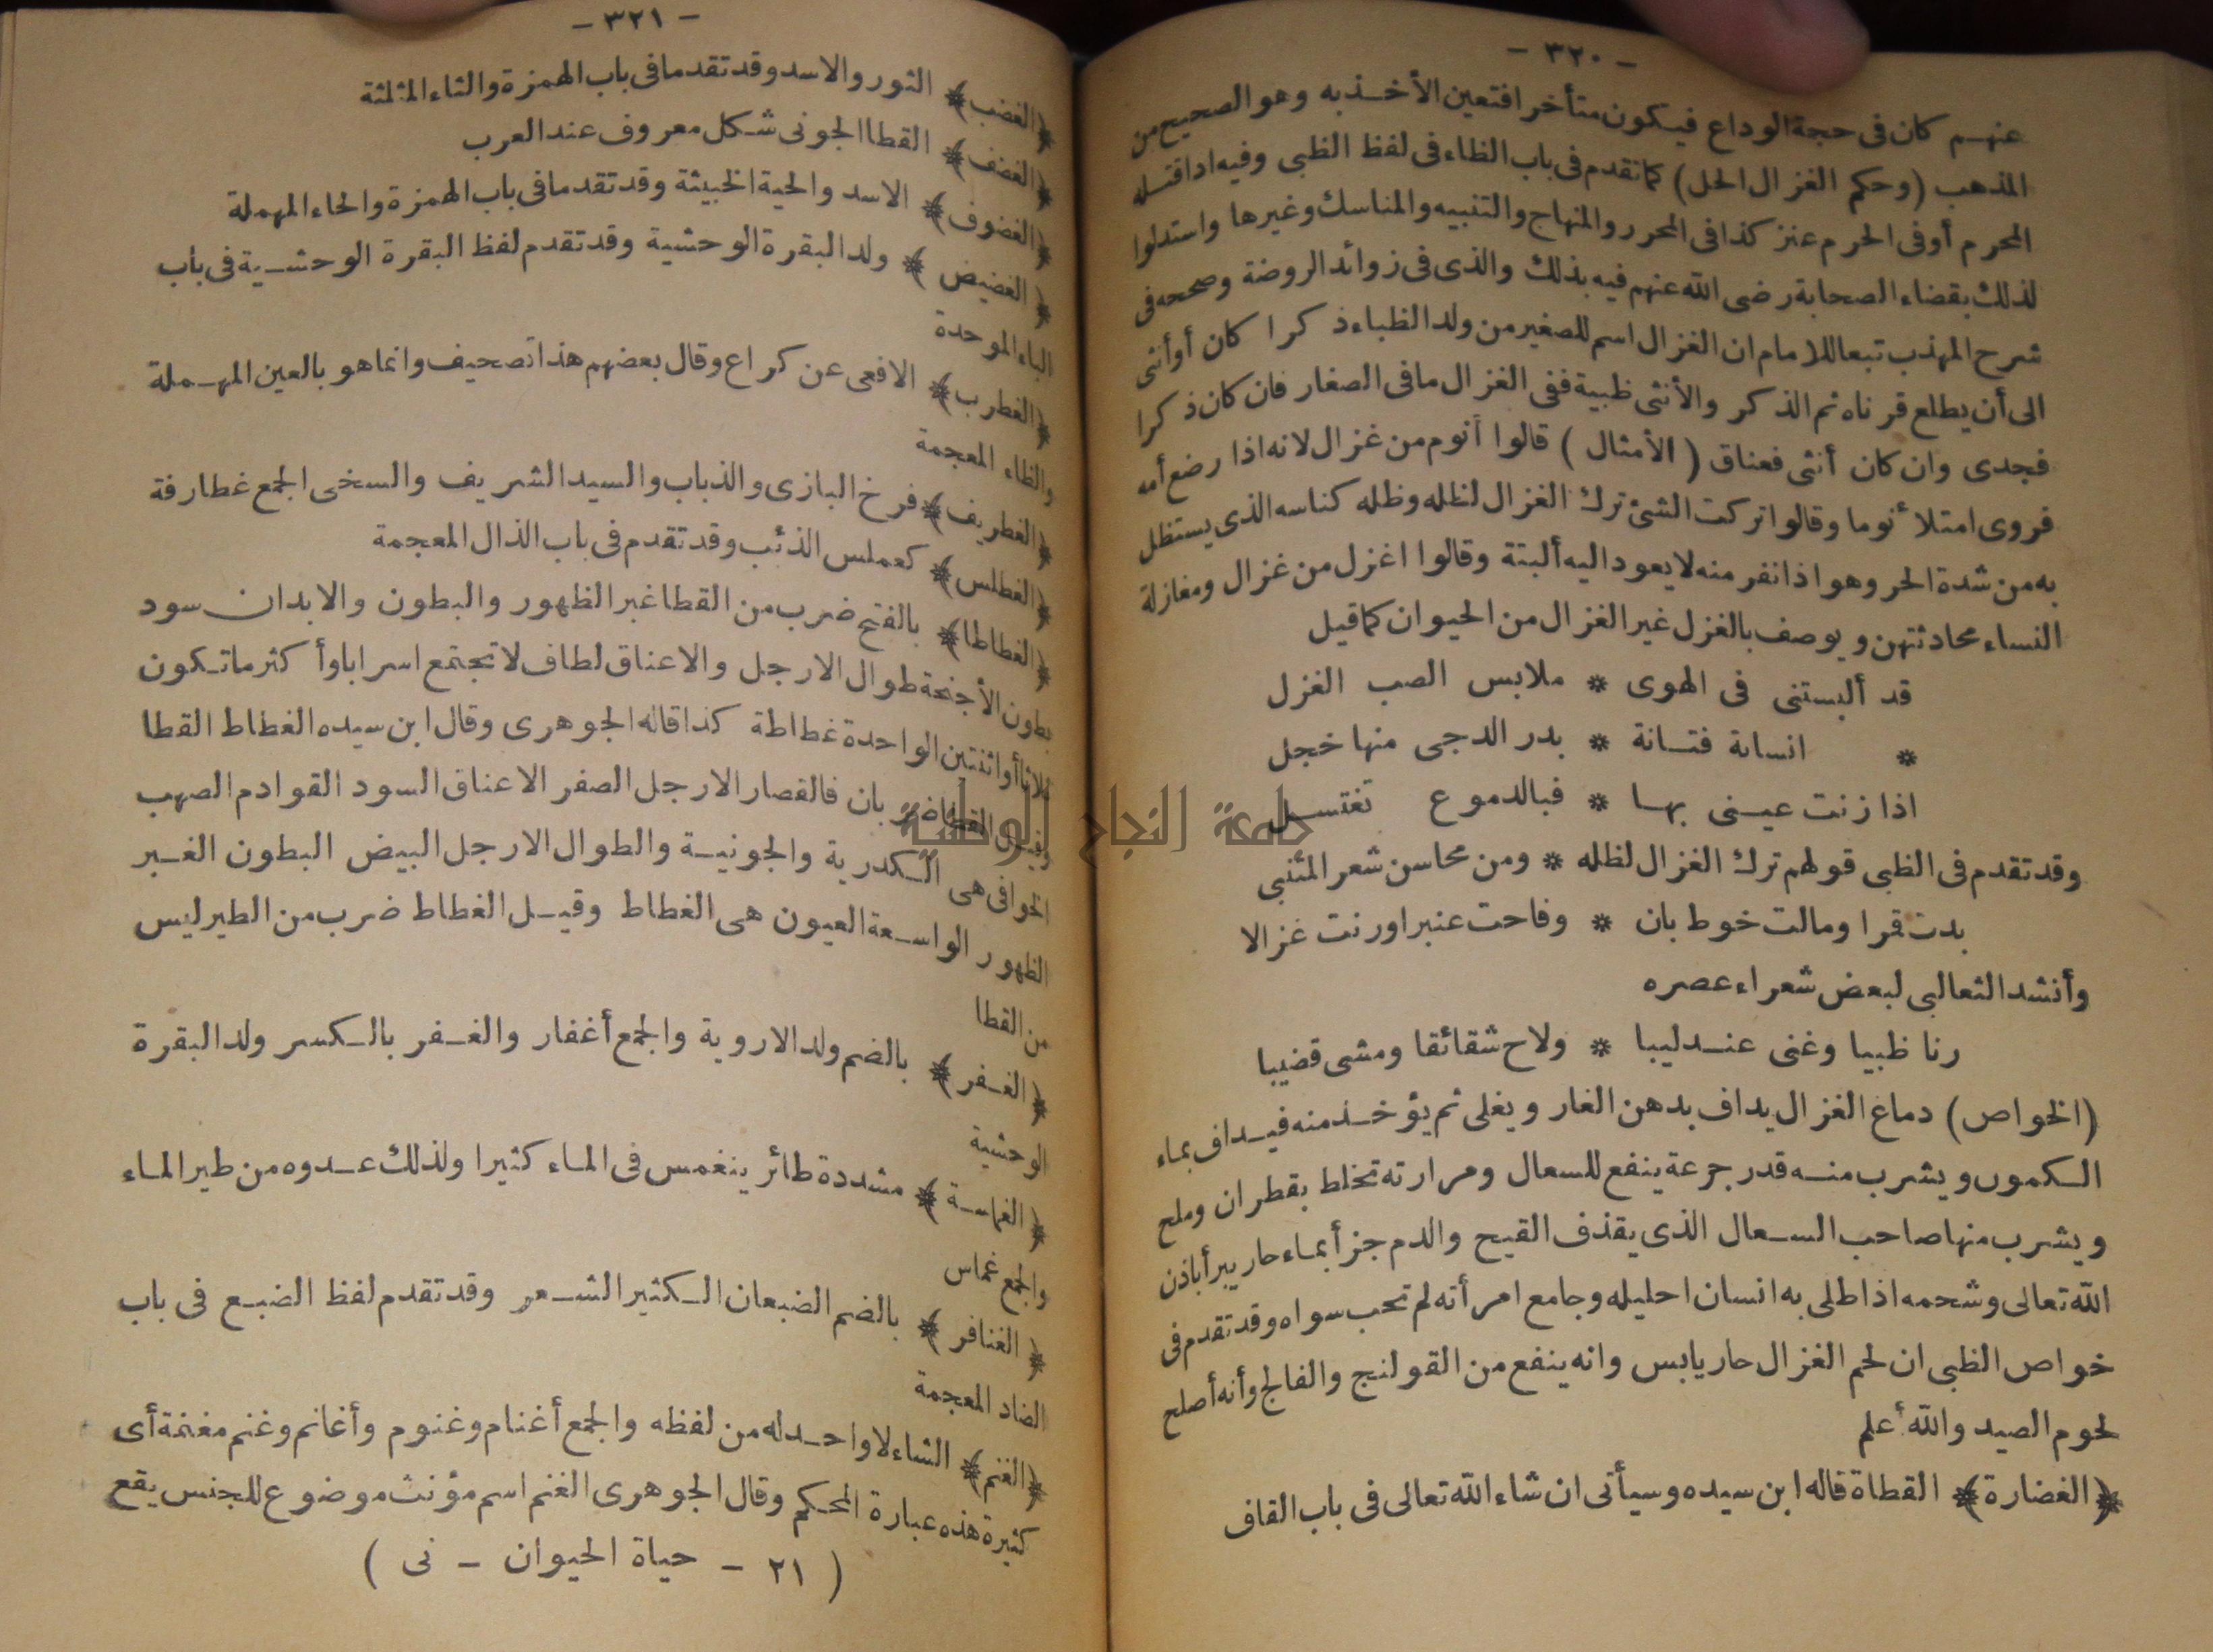 - ٣٢٠ -
عنهم كان فى حجة الوداع فيكون متأخرا فتعين الأخذ به وهو الصحيح من
المذهب (وحكم الغزال الحل) كما تقدم فى باب الظاء فى لفظ الظبى وفيه اذا قتله
المحرم أو فى الحرم عنز كذا فى المحرر والمنهاج والتنبيه والمناسك وغيرها واستدلوا
لذلك بقضاء الصحابة رضى الله عنهم فيه بذلك والذى فى زوائد الروضة وصححه فى
شرح المهذب تبعا للامام ان الغزال اسم للصغير من ولد الظباء ذكرا كان أو أنثى
الى أن يطلع قرناه ثم الذكر والأنثى ظبية ففى الغزال ما فى الصغار فان كان ذكرا
فجدى وان كان أنثى فعناق (الأمثال) قالوا أنوم من غزال لانه اذا رضع أمه
فروى امتلأ نوما وقالوا تركت الشئ ترك الغزال لظله وظله كناسه الذى يستظل
به من شدة الحر وهو اذا نفر منه لا يعود اليه ألبتة وقالوا اغزل من غزال ومغازلة
النساء محادثتهن ويوصف بالغزل غير الغزال من الحيوان كما قيل
قد ألبستنى فى الهوى * ملابس الصب الغزل
* انسانة فتانة * بدر الدجى منها خجل
اذا زنت عينى بها * فبالدموع تغتسل
وقد تقدم فى الظبى قولهم ترك الغزال لظله * ومن محاسن شعر المتنبى
بدت قمرا ومالت خوط بان * وفاحت عنبرا ورنت غزالا
وأنشد الثعالبى لبعض شعراء عصره
رنا ظبيا وغنى عندليبا * ولاح شقائقا ومشى قضيبا
(الخواص) دماغ الغزال يداف بدهن الغار ويغلى ثم يؤخذ منه فيداف بماء
الكمون ويشرب منه قدر جرعة ينفع للسعال ومرارته تخلط بقطران وملح
ويشرب منها صاحب السعال الذى يقذف القيح والدم جزأ بماء حار يبرأ باذن
الله تعالى وشحمه اذا طلى به انسان احليله وجامع امرأته لم تحب سواه وقد تقدم فى
خواص الظبى ان لحم الغزال حار يابس وانه ينفع من القولنج والفالج وأنه أصلح
لحوم الصيد والله أعلم
﴿الغضارة﴾ القطاة قاله ابن سيده وسيأتى ان شاء الله تعالى فى باب القاف
- ٣٢١ -
﴿الغضب﴾ الثور والاسد وقد تقدما فى باب الهمزة والثاء المثلثة
﴿الغضف﴾ القطا الجونى شكل معروف عند العرب
﴿الغضوف﴾ الاسد والحية الخبيثة وقد تقدما فى باب الهمزة والحاء المهملة
﴿الغضيض﴾ ولد البقرة الوحشية وقد تقدم لفظ البقرة الوحشية فى باب
الباء الموحدة
﴿الغطرب﴾ الافعى عن كراع وقال بعضهم هذا تصحيف وانما هو بالعين المهملة
والظاء المعجمة
﴿الغطريف﴾ فرخ البازى والذباب والسيد الشريف والسخى الجمع غطارفة
﴿الغطلس﴾ كعملس الذئب وقد تقدم فى باب الذال المعجمة
﴿الغطاطا﴾ بالفتح ضرب من القطا غبر الظهور والبطون والابدان سود
بطون الأجنحة طوال الارجل والاعناق لطاف لا تجتمع اسرابا وأكثر ما تكون
ثلاثا أو اثنتين الواحدة غطاطة كذا قاله الجوهرى وقال ابن سيده الغطاط القطا
وقيل القطا ضربان فالقصار الارجل الصفر الاعناق السود القوادم الصهب
الخوافى هى الكدرية والجونية والطوال الارجل البيض البطون الغبر
الظهور الواسعة العيون هى الغطاط وقيل الغطاط ضرب من الطير ليس
من القطا
﴿الغفر﴾ بالضم ولد الاروية والجمع أغفار والغفر بالكسر ولد البقرة
الوحشية
﴿الغماسة﴾ مشددة طائر ينغمس فى الماء كثيرا ولذلك عدوه من طير الماء
والجمع غماس
﴿الغنافر﴾ بالضم الضبعان الكثير الشعر وقد تقدم لفظ الضبع فى باب
الضاد المعجمة
﴿الغنم﴾ الشاء لا واحد له من لفظه والجمع أغنام وغنوم وأغانم وغنم مغنمة أى
كثيرة هذه عبارة المحكم وقال الجوهرى الغنم اسم مؤنث موضوع للجنس يقع
( ٢١ - حياة الحيوان - نى )
جامعة النجاح الوطنية